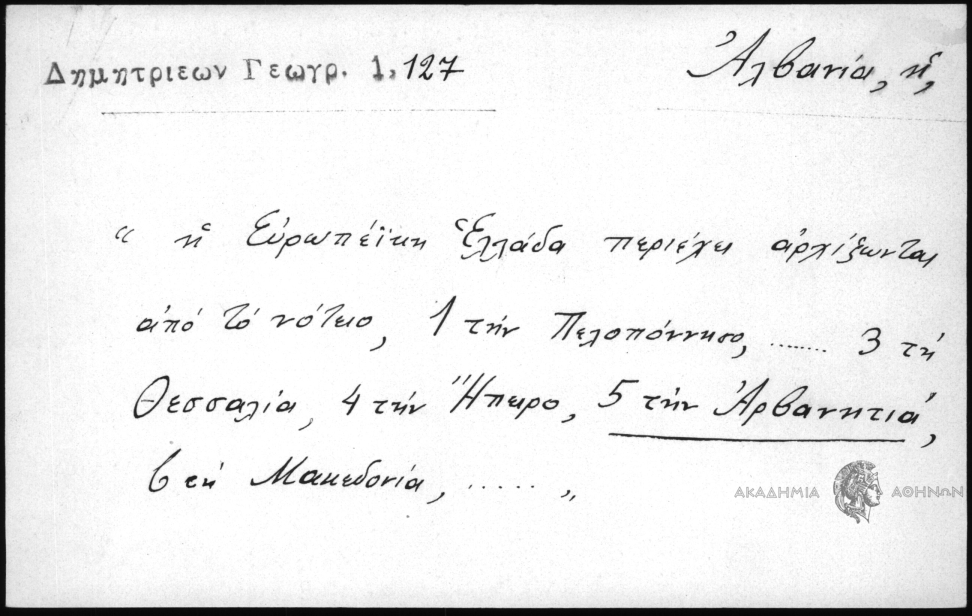 Δημητριεων Γεωγρ. 1, 127
Ἀλβανία, ἡ,
“ ἡ Εὐρωπέϊκη Ἑλλάδα περιέχει ἀρχίζωνται
ἀπό τό νότειο, 1 τήν Πελοπόννησο, ...... 3 τή
Θεσσαλία, 4 τήν Ἤπειρο, 5 τήν Ἀρβανητιά,
6 τή Μακεδονία, ..... „
ΑΚΑΔΗΜΙΑ ΑΘΗΝΩΝ